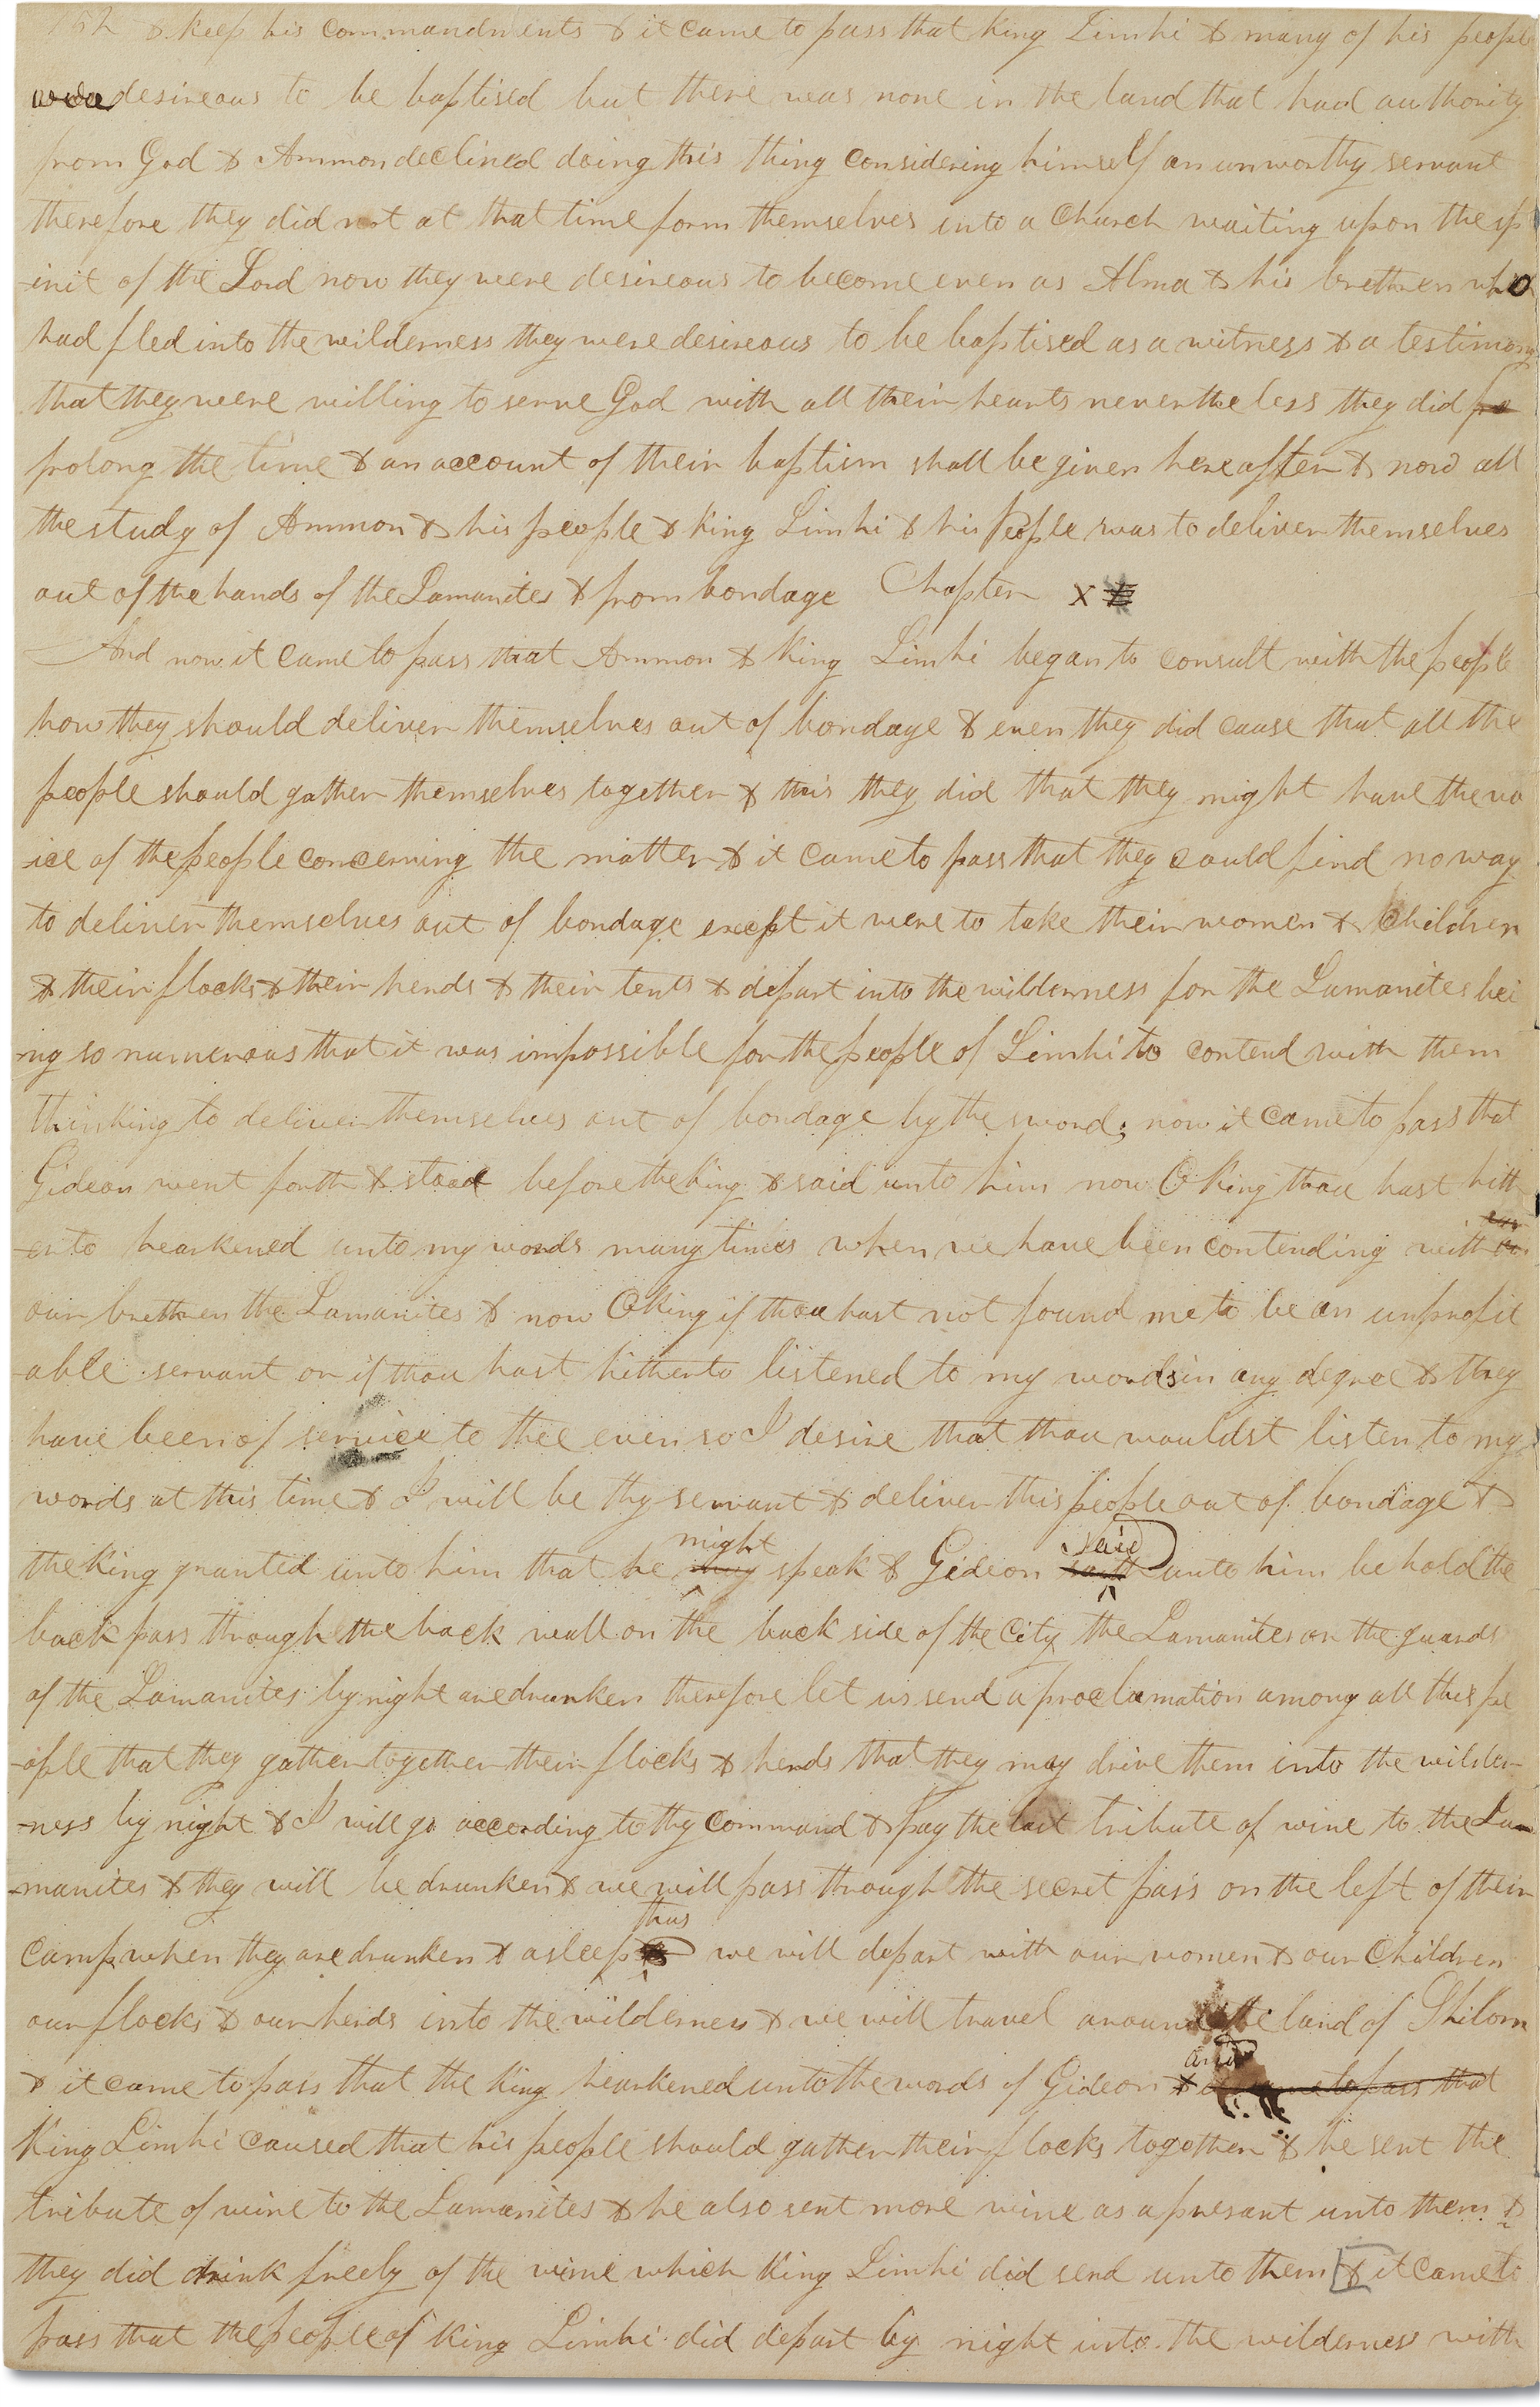 152 & keep his commandments & it came to pass that King Limhi & many of his people
were desireous to be baptised but there was none in the land that had authority
from God & Ammon declined doing this thing considering himself an unworthy servant
therefore they did not at that time form themselves into a Church waiting upon the sp
-irit of the Lord now they were desireous to become even as Alma & his brethren who
had fled into the wilderness they were desireous to be baptised as a witness & a testimony
that they were willing to serve God with all their hearts nevertheless they did
prolong the time & an account of their baptism shall be given hereafter & now all
the study of Ammon & his people & King Limhi & his People was to deliver themselves
out of the hands of the Lamanites & from bondage Chapter X
And now it came to pass that Ammon & King Limhi began to consult with the people
how they should deliver themselves out of bondage & even they did cause that all the
people should gather themselves together & this they did that they might have the vo
-ice of the people concerning the matter & it came to pass that they could find no way
to deliver themselves out of bondage except it were to take their women & Children
& their flocks & their herds & their tents & depart into the wilderness for the Lamanites bei
-ng so numerous that it was impossible for the people of Limhi to contend with them
thinking to deliver themselves out of bondage by the sword; now it came to pass that
Gideon went forth & stood before the King & said unto him now O King thou hast hith
-erto hearkened unto my words many times when we have been contending with
our brethren the Lamanites & now O King if thou hast not found me to be an unprofit
-able servant or if thou hast hitherto listened to my words in any degree & they
have been of service to thee even so I desire that thou wouldst listen to my
words at this time & I will be thy servant & deliver this people out of bondage &
might said
the King granted unto him that he may speak & Gideon saith unto him behold the
back pass through the back wall on the back side of the City the Lamanites or the guards
of the Lamanites by night are drunken therefore let us send a proclamation among all this pe
-ople that they gather together their flocks & herds that they may drive them into the wilder-
-ness by night & I will go according to thy command & pay the last tribute of wine to the La
-manites & they will be drunken & we will pass through the secret pass on the left of their
thus
camp when they are drunken & asleep we will depart with our women & our Children
our flocks & our herds into the wilderness & we will travel around the land of Shilom
and
& it came to pass that the King hearkened unto the words of Gideon & it came to pass that
King Limhi caused that his people should gather their flocks together & he sent the
tribute of wine to the Lamanites & he also sent more wine as a presant unto them &
they did drink freely of the wine which King Limhi did send unto them & it came to
pass that the people of King Limhi did depart by night into the wilderness with